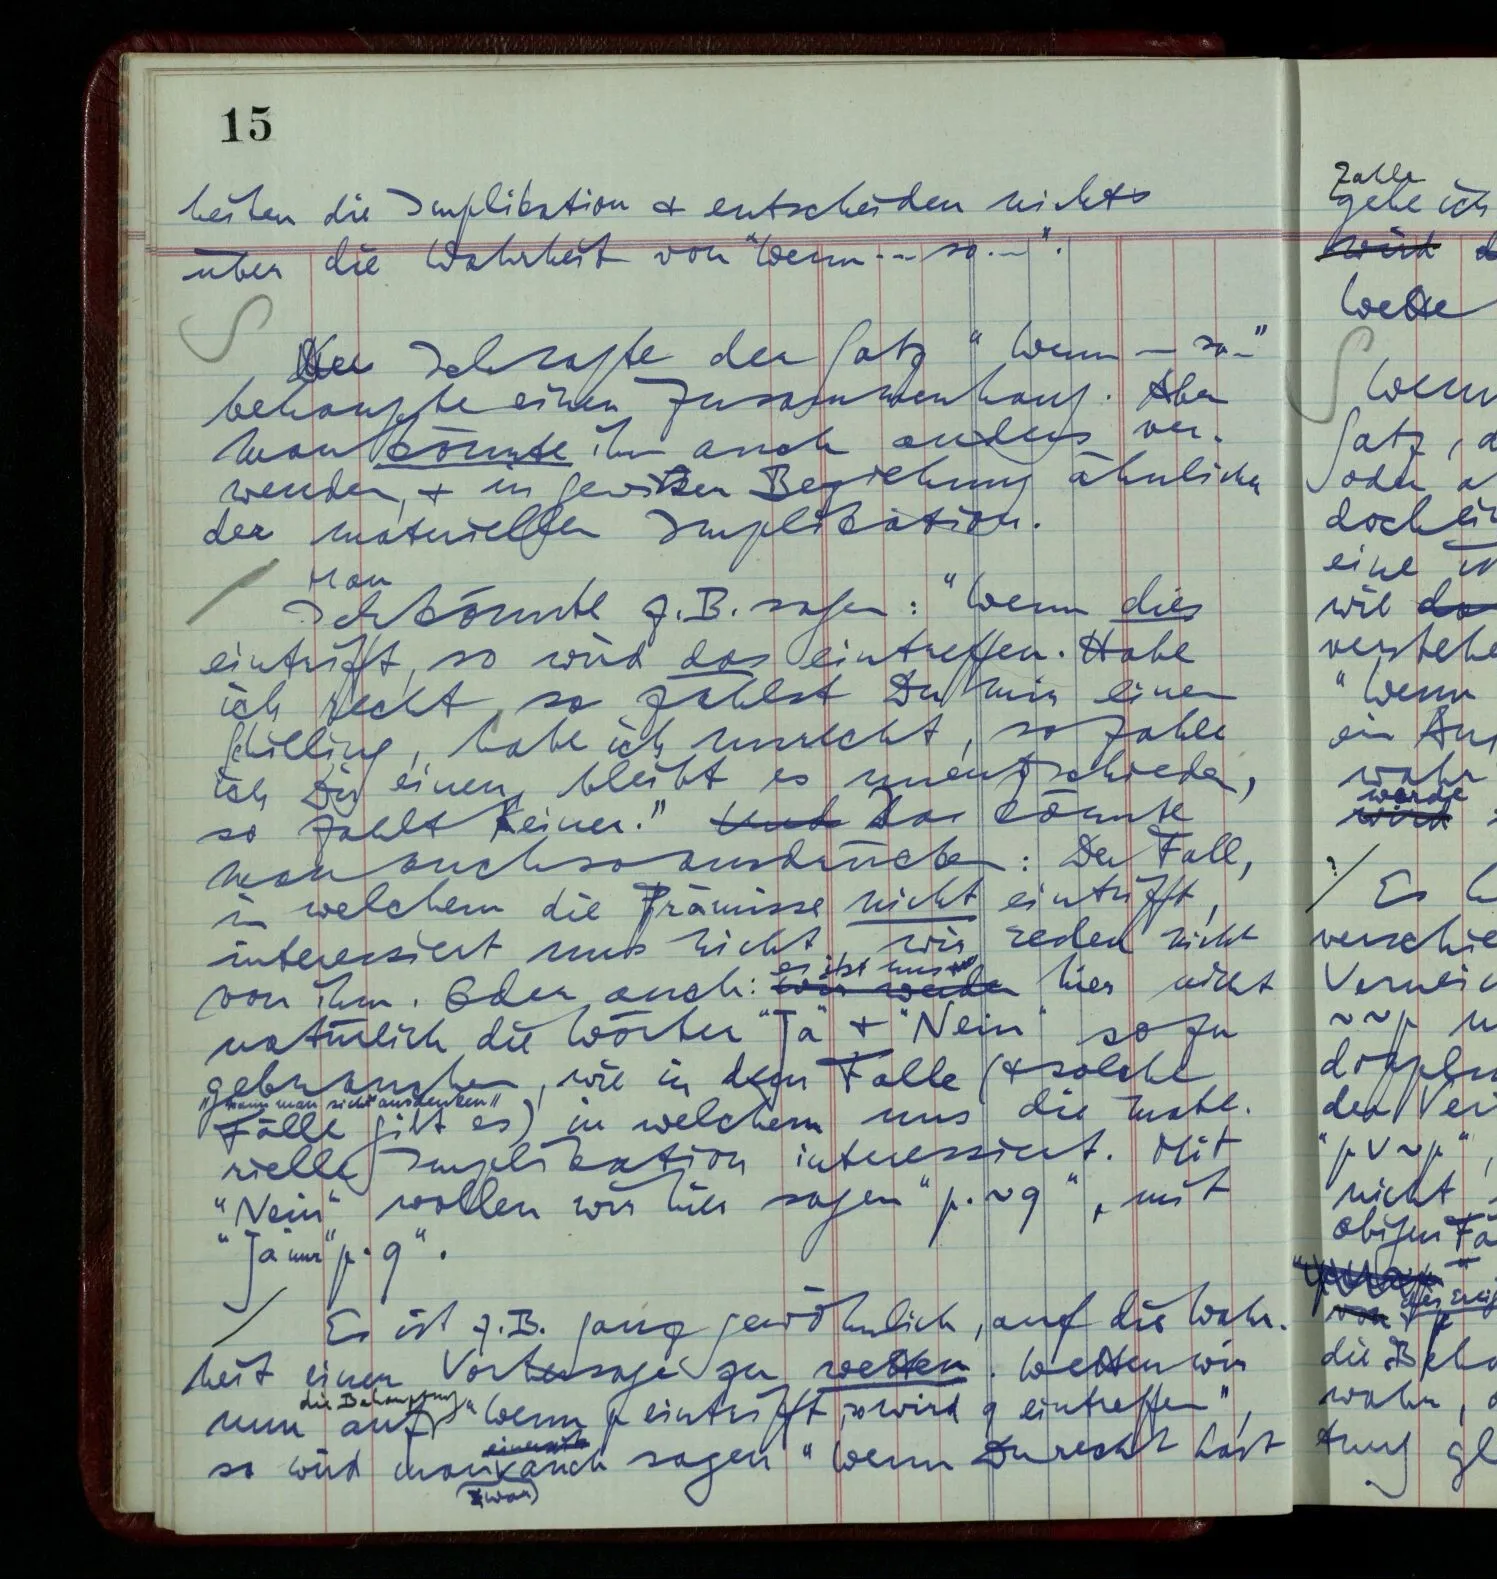 15
heiten die Implikation & entscheiden nichts
über die Wahrheit von "Wenn --- so ---".
Ich sagte der Satz "Wenn — so —"
behaupte einen Zusammenhang. Aber
man könnte ihn auch anders ver-
wenden, & in gewissen Beziehung ähnlich
der materiellen Implikation.
Man
Ich könnte z.B. sagen: "Wenn dies
eintrifft, so wird das eintreffen. Habe
ich recht, so zahlst Du mir einen
Schilling, habe ich unrecht, so zahle
ich Dir einen, bleibt es unentschieden,
so zahlt keiner." Und Das könnte
man auch so ausdrücken: Der Fall,
in welchem die Prämisse nicht eintrifft,
interessiert uns nicht, wir reden nicht
es ist uns
von ihm. Oder auch: wir werden hier nicht
natürlich die Wörter "Ja" & "Nein" so zu
gebrauchen, wie in dem Falle (& solche
"kann man sich ausdenken"
Fälle gibt es) in welchem uns die mate-
rielle Implikation interessiert. Mit
"Nein" wollen wir hier sagen "p . ~q", mit
"Ja" nur "p . q".
Es ist z.B. ganz gewöhnlich, auf die Wahr-
heit einer Vorhersage zu wetten. Wetten wir
die Behauptung
nun auf "Wenn p eintrifft, so wird q eintreffen",
einerseits
so wird man auch sagen "Wenn Du recht hast
(zwar)
Zahle
gebe ich
wird
Wette
Satz,
oder
doch
eine
wie
verstehe
"Wenn
ein
wahr
werde
wird
?/ Es
verschie
Vernein
~~p
der Ver
"p v ~p",
nicht
obigen
von
die Beha
wahr,
tung